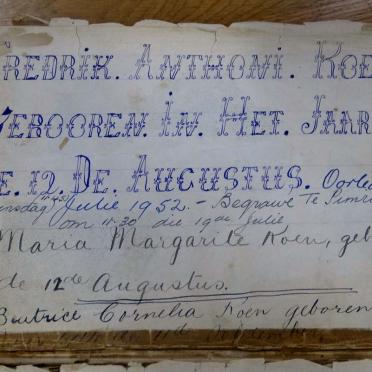 FREDRIK. ANTHONI. KOE
VEROOREN. IN. HET. JAAR
E. 12. DE. AUGUSTUS. Oorle
Julie 1952. - Begrawe Te
om 11.30 die 19de Julie
Maria Margarite Koen, geb
de 12de Augustus.
Beatrice Cornelia Koen geboren